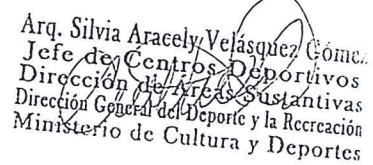 Arq. Silvia Aracely Velásquez Gómez
Jefe de Centros Deportivos
Dirección de Areas Sustantivas
Dirección General del Deporte y la Recreación
Ministerio de Cultura y Deportes